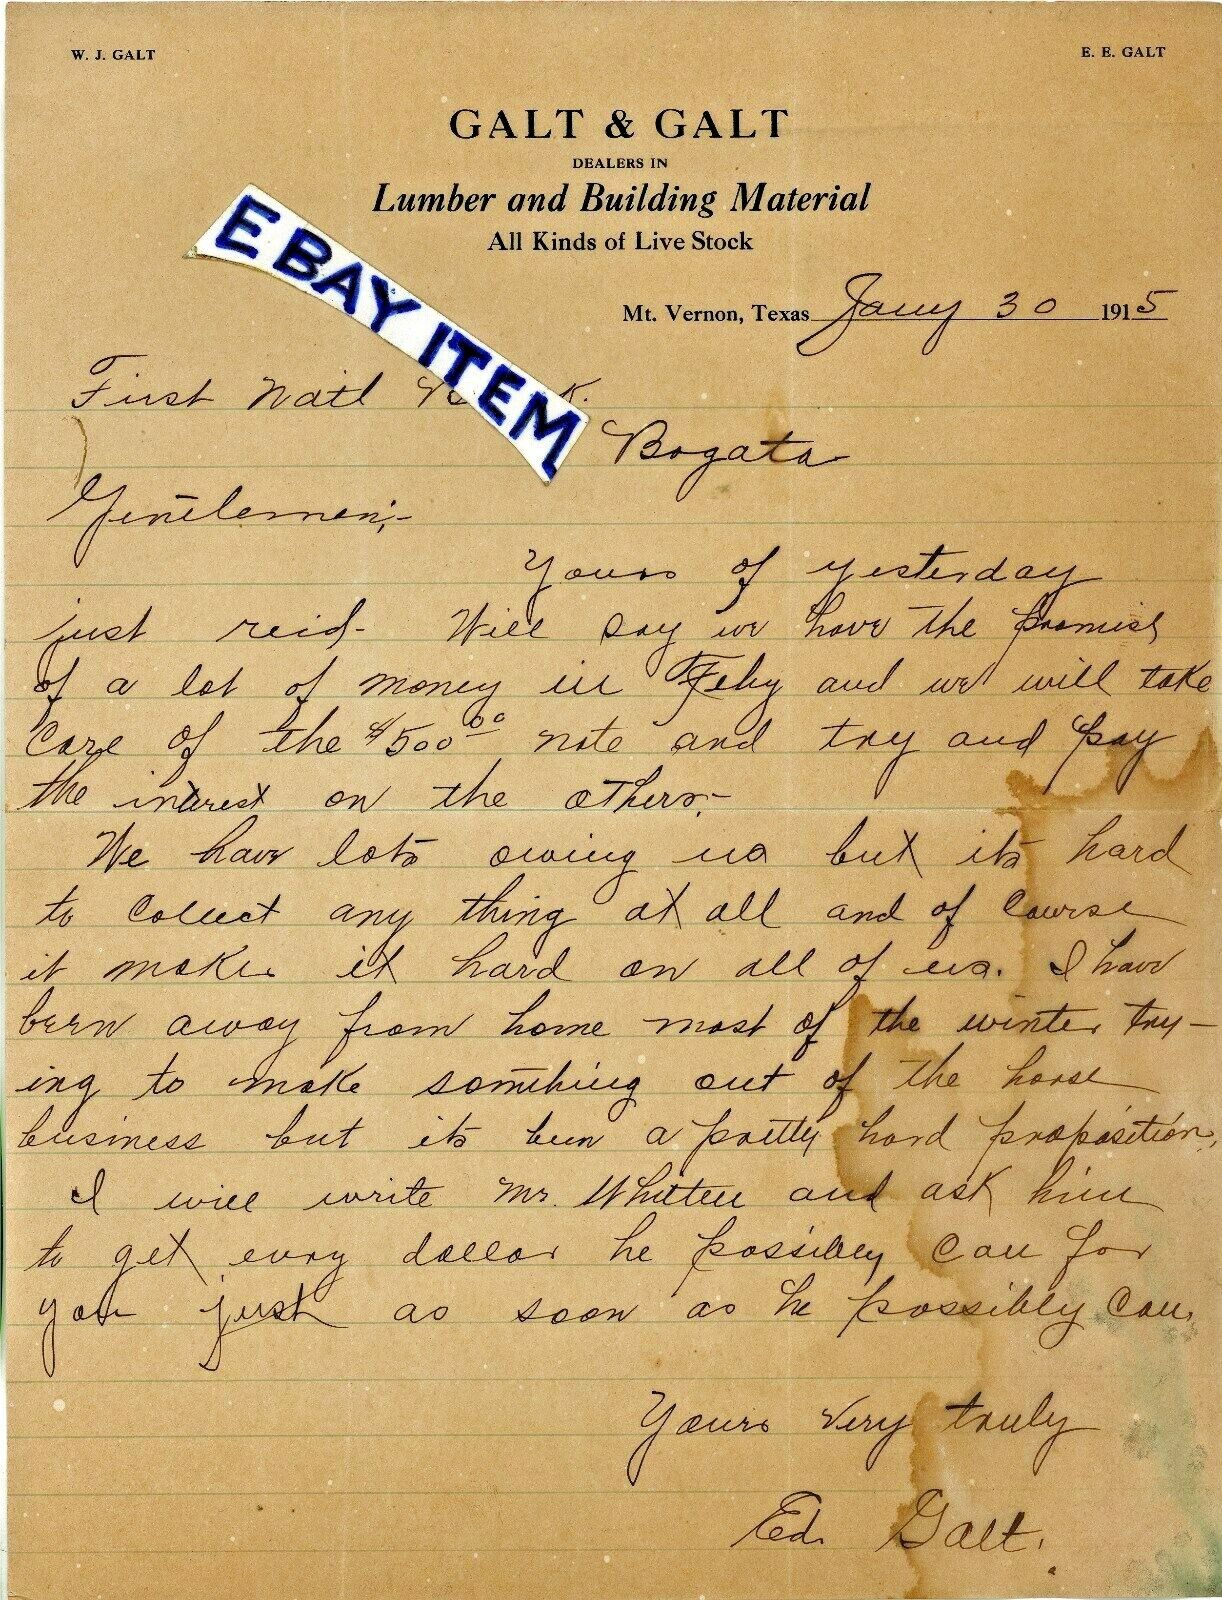 W. J. GALT
E. E. GALT
GALT & GALT
DEALERS IN
Lumber and Building Material
All Kinds of Live Stock
EBAY ITEM
Mt. Vernon, Texas Jany 30 1915
First Nat'l
Bogata
Gentlemen;-
Yours of yesterday
just rec'd- Will say we have the promise
of a lot of money in Feby and we will take
care of the $500.00 note and try and pay
the interest on the others.-
We have lots owing us but its hard
to collect any thing at all and of course
it makes it hard on all of us. I have
been away from home most of the winter try-
ing to make something out of the horse
business but its been a pretty hard proposition.
I will write Mr. Whitten and ask him
to get every dollar he possibly can for
you just as soon as he possibly can.
Yours Very truly
Ed. Galt.